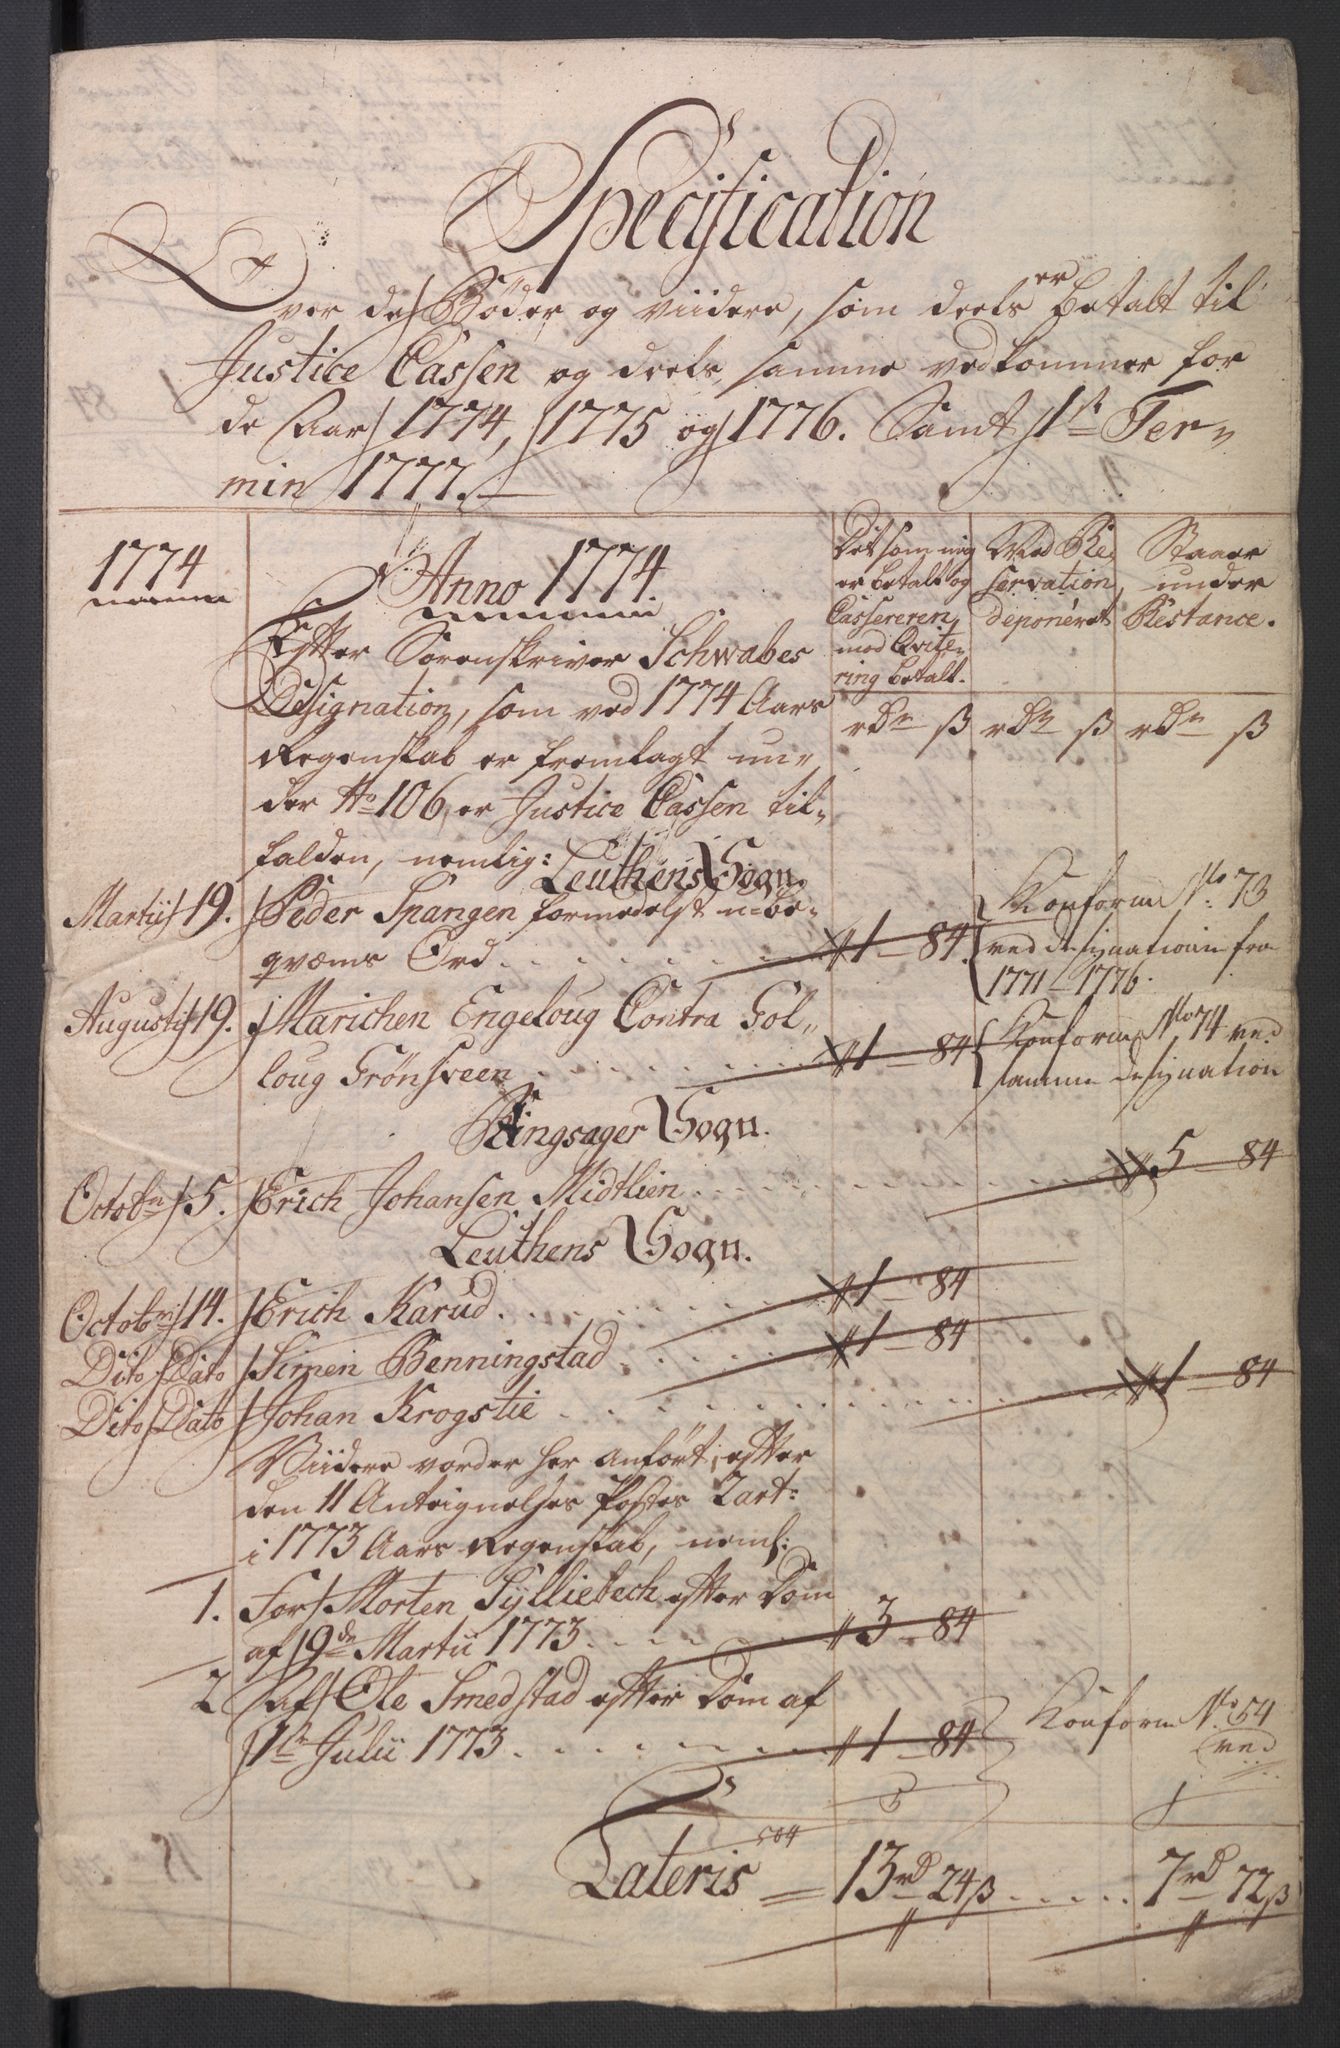 Specification
Over de Bøder og viidere, som deels er betalt til
Justice Cassen og deels samme vedkommer for
de Aar 1774, 1775 og 1776. Samt 1ste Ter-
min 1777.
1774
Anno 1774
Det som mig
er betalt og
Cassereren
mod Qvite-
ring betalt.
Med Re-
servation
deponéret
Staaer
under
Restance.
Efter Sorenskriver Schwabes
Designation, som ved 1774 Aars
Regenskab er fremlagt un-
der No 106, er Justice Cassen til-
falden, nemlig:
rdr ß rdr ß rdr ß
Leuthens Sogn.
Martij 19. Peder Spangen formedelst ube-
qvæms Ord . . . . . 1 - 84.
Konform No. 73
ved designationen fra
1771 - 1776.
Augustij 19. Marichen Engeloug Contra Gol-
loug Grønsveen . . . . . 1 - 84
Konform No 74 ved
samme designation
Ringsager Sogn.
Octobr 5. Erich Johansen Midtlien . . . . . 5 - 84
Leuthens Sogn.
Octobr 14. Erich Karud . . . . . 1 - 84
Dito Dato Simen Benningstad . . . . . 1 - 84
Dito Dato Johan Krogstie . . . . . 1 - 84
Viidere vorder her anført, efter
den 11 Antegnelses Postes
i 1773 Aars Regenskab, neml:
1. For Morten Sylliebech efter Dom
af 9de Martii 1773 . . . . . 3 - 84
2 Af Ole Smedstad efter Dom af
1ste Julii 1773 . . . . . 1 - 84
Konform No. 54
ved
504
Lateris = 13rd 24ß . . . . . 7rd 72ß